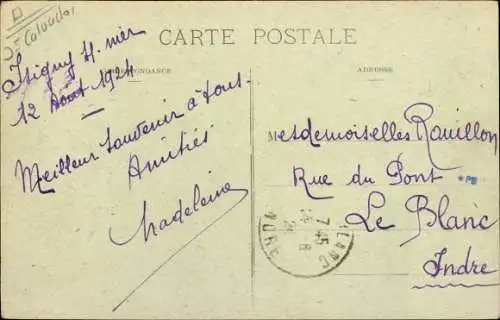 Calvados
CARTE POSTALE
CORRESPONDANCE
ADRESSE
Isigny s. mer
12 Août
Meilleur souvenir à tous.
Amitiés
Madeleine
Mesdemoiselles Rouillon
Rue du Pont
Le Blanc
Indre
7 45
BLANC
INDRE